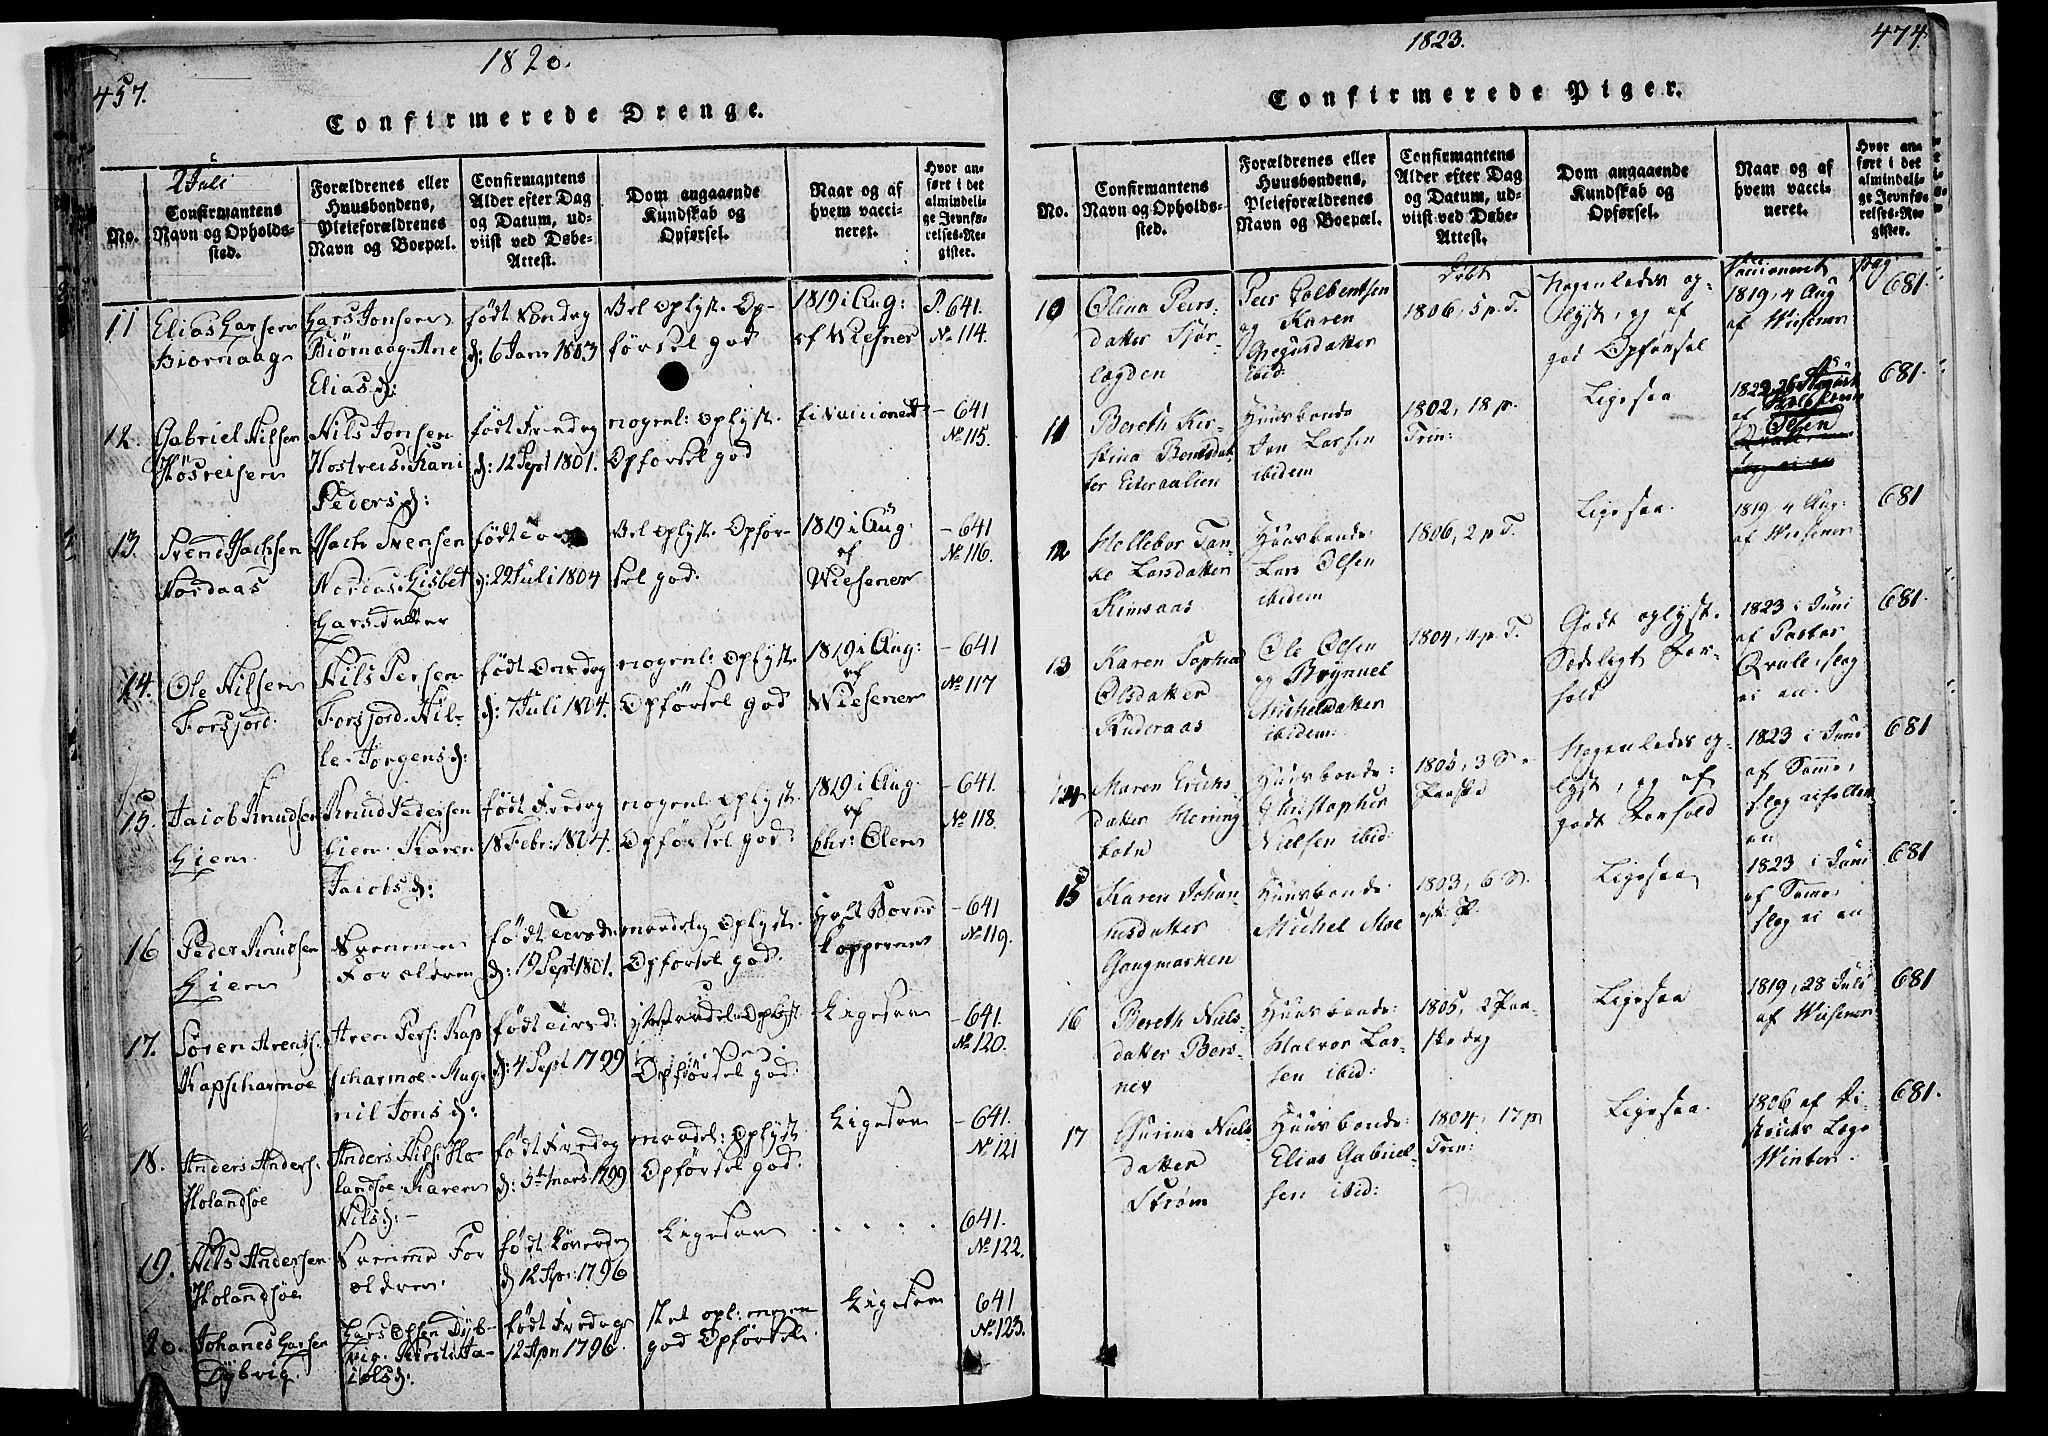 457.
1820.
Confirmerede Drenge.
2 Juli
No.
Confirmantens
Navn og Opholds-
sted.
Forældrenes eller
Huusbondens,
Pleieforældrenes
Navn og Boepæl.
Confirmantens
Alder efter Dag
og Datum, ud-
viist ved Døbe-
Attest.
Dom angaaende
Kundskab og
Opførsel.
Naar og af
hvem vacci-
neret.
Hvor an-
ført i det
almindeli-
ge Jevnfø-
relses-Re-
gister.
11
Elias Larsen
Biørnaag
Lars Jonsen
Biørnaag. Ane
Elias d:
født Søndag
d: 6 Jan 1803
Vel oplyst. Op-
førsel god
1819 i Aug:
af Wiesner
P. 641.
No 114.
12.
Gabriel Nilsen
Høsreisen
Nils Jonsen
Hostreis. Kani
Peders d:
født Fredag
d: 12 Sept 1801.
nogenl: oplyst.
Opførsel god
– 641
No 115.
13.
Svend Isachsen
Nordaas
Isach Svensen
Nordaas. Lisbet
Larsdatter
født
d: 22 Juli 1804
Vel oplyst. Opfør-
sel god:
1819 i Aug:
af
Wiesener
– 641
No 116.
14.
Ole Nilsen
Forsjord.
Nils Persen
Forsjord. Nil-
le Jørgens d:
født Onsdag
d: 7 Juli 1804.
nogenl: oplyst.
Opførsel god
1819 i Aug:
af
Wiesener
– 641
No 117
15.
Jacob Knudsen
Liem
Knud Pedersen
Liem. Karen
Jacobs d:
født Fredag
18 Febr: 1804.
nogenl: oplyst.
Opførsel god:
1819 i Aug:
af
Chr: Olsen
– 641.
No 118.
16
Peder Knudsen
Liem
Samme
Forældren
født Tirsd:
d: 19 Sept 1801.
maadelig oplyst.
Opførsel god.
Kopperne
– 641
No 119.
17.
Søren Arents:
Kapscharmoe
Aren Pers: Kap
scharmoe. Mag-
nil Jons d:
født Tirsd:
d: 4 Sept 1799
maadel: Oplyst
Opførsel god:
Ligesaa
– 641.
No 120.
18.
Anders Anders:
Holandsøe
Anders Nils: Ho-
landsøe. Karen
Nils d: –
født Fredag
d: 5te mars 1799
maadel: oplyst
Opførsel god:
Ligesaa
– 641.
No 121
19.
Nils Andersen
Holandsøe
Samme For
ældren.
født Løverdag
d 12 Apr: 1796
Ligesaa
. . . .
641.
No 122.
20.
Johanes Larsen
Dÿbvig.
Lars Olsen Dÿb-
vig. Kirsti Ja-
cobs d:
født Fredag
12 Apri 1796.
slet opl: megen
god Opførsel.
Ligesaa
641
No 123.
1823.
474
Confirmerede Piger.
No.
Confirmantens
Navn og Opholds-
sted.
Forældrenes eller
Huusbondens,
Pleieforældrenes
Navn og Boepæl.
Confirmantens
Alder efter Dag
og Datum, ud-
viist ved Døbe-
Attest.
Dom angaaende
Kundskab og
Opførsel.
Naar og af
hvem vacci-
neret.
Hvor an-
ført i det
almindeli-
ge Jevnfø-
relses-Re-
gister.
10
Olina Peers-
datter
Peer Tolbentsen
og Karen
Gregusdatter
ibid:
Døbt
1806, 5 p. T.
Nogenledes op-
lyst, og af
god Opførsel
Vaccineret
1819, 4 Aug
af Wiesener
pag
681.
11
Bereth Kir-
stina Bentsdat-
ter
Huusbonde
Jon Larsen
ibidem
1802, 18 p.
Trin:
Ligesaa
1822, 26
af
Olsen
681.
12
Hellebor Tan-
ke Larsdatter
Remsaas
Huusbonde
Lars Olsen
ibidem
1806, 2 p T.
Ligesaa.
1819 4 Aug:
af Wiesener
681
13
Karen Sophia
Olsdatter
Ruderaas
Ole Olsen
og Brynnel
Michelsdatter
ibidem:
1804, 4 p. T.
Godt oplyst.
Sædeligt For-
hold
1823 i Juni
af Pastor
Qvale, slog
ei an.
681.
14
Maren Erichs-
datter Hering-
botn
Huusbonde:
Christopher
Nielsen ibid:
1805, 3 S. e
Paaske
Nogenledes op-
lyst, og af
godt Forhold
1823 i Juni
af Samme,
slog
an
681
15
Karen Johan-
nesdatter
Gangmarken
Huusbonde:
Michel Moe
1803, 6 S.
Ligesaa
1823 i Juni
af Samme,
slog ei an
681
16
Bereth Niels-
datter Bers-
nes
Huusbonde:
Halvor Lar-
sen ibid:
1805, 2 Paa-
skedag
Ligesaa
1819, 28 Juli
af Wiesener
681
17
Gurina Niels-
datter
Strøm
Huusbonde:
Elias Gabriel-
sen ibid:
1804, 17 p
Trin:
Ligesaa.
1806 af Di-
stricts Læge
Winter.
681.